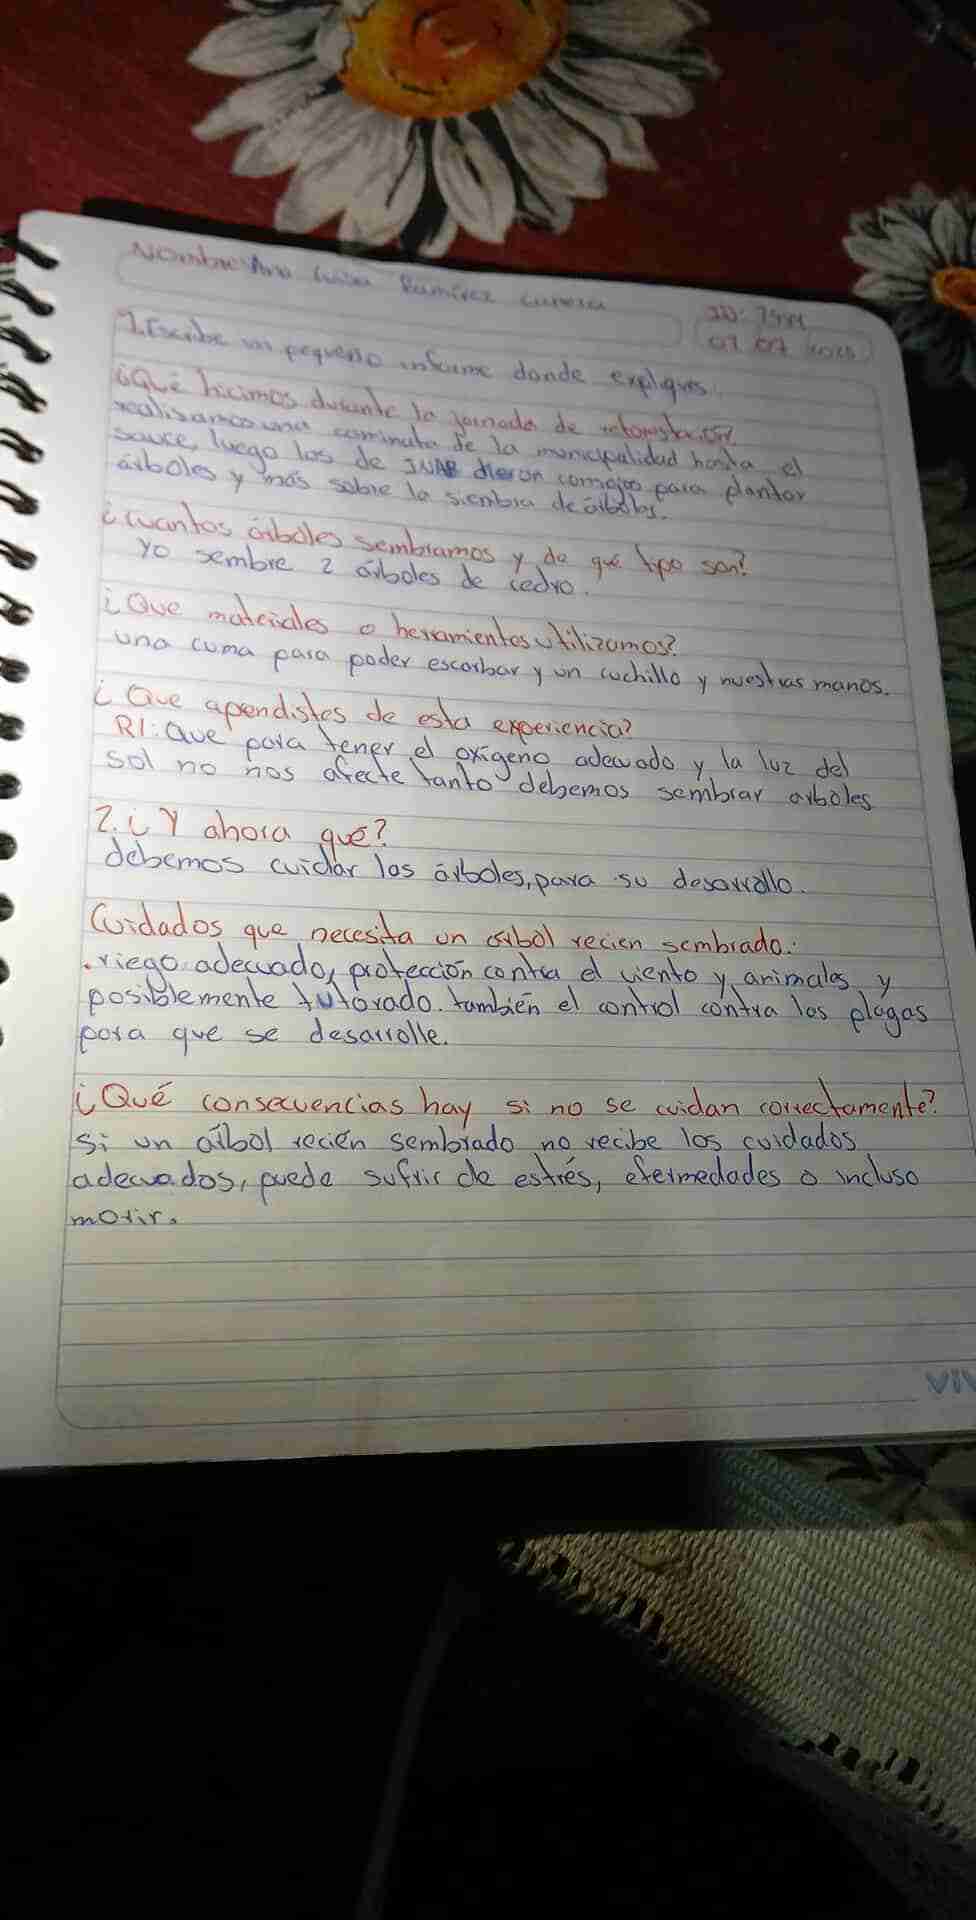 Nombre: Ana Luisa Ramírez
ID:
07 07 2025
1. Escribe un pequeño informe donde expliques:
¿Qué hicimos durante la jornada de reforestación?
realisamos una caminata de la municipalidad hasta el
sauce, luego los de INAB dieron consejos para plantar
árboles y más sobre la siembra de árboles.
¿cuantos árboles sembramos y de qué tipo son?
Yo sembre 2 árboles de cedro.
¿Que materiales o herramientas utilizamos?
una cuma para poder escarbar y un cuchillo y nuestras manos.
¿Que apendistes de esta experiencia?
R1: Que para tener el oxígeno adecuado y la luz del
sol no nos afecte tanto debemos sembrar arboles
2. ¿Y ahora qué?
debemos cuidar los árboles, para su desarrollo.
Cuidados que necesita un árbol recien sembrado:
.riego adecuado, protección contra el viento y animales y
posiblemente tutorado. también el control contra las plagas
para que se desarrolle.
¿Qué consecuencias hay si no se cuidan correctamente?
Si un árbol recién sembrado no recibe los cuidados
adecuados, puede sufrir de estrés, efermedades o incluso
morir.